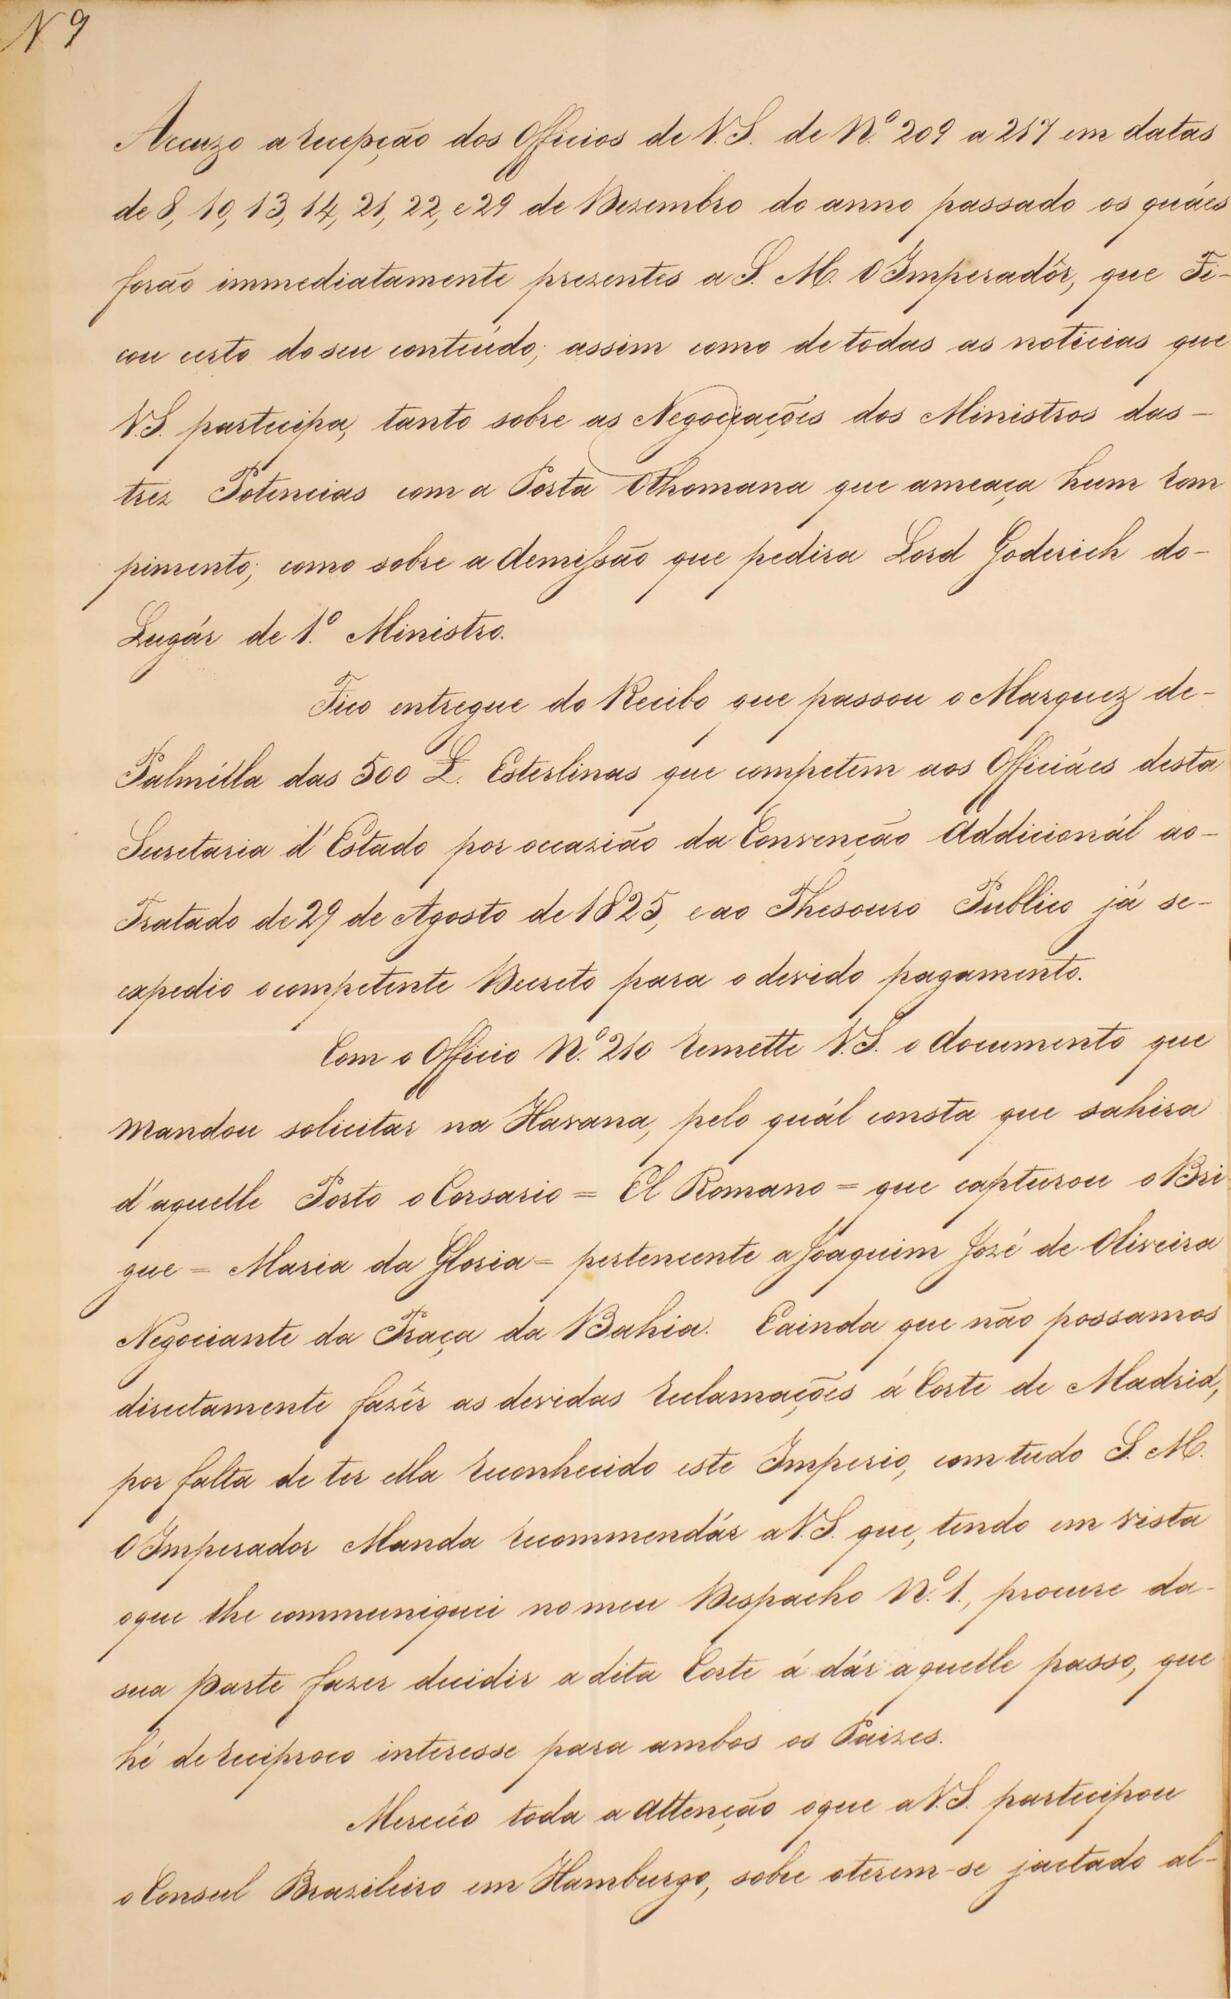 N 9
Accuzo a recepção dos Officios de V.S. de N.º 209 a 217 em datas
de 8, 10, 13, 14, 21, 22, e 29 de Dezembro do anno passado os quáes
forão immediatamente prezentes a S. M. O Imperadôr, que Fi-
cou certo do seu conteúdo; assim como de todas as noticias que
V.S. participa, tanto sobre as Negociações dos Ministros das-
trez Potencias com a Porta Othomana que ameaça hum rom
pimento; como sobre a demissão que pedira Lord Goderich do-
Lugár de 1.º Ministro.
Fico entregue do Recibo que passou o Marquez de-
Palmélla das 500 L. Esterlinas que competem aos Officiáes desta
Secretaria d'Estado por occazião da Convenção Addicionál ao-
Tratado de 29 de Agosto de 1825, e ao Thesouro Publico já se-
expedio o competente Decreto para o devido pagamento.
Com o Officio N.º 210 remette V.S. o documento que
mandou solicitar na Havana, pelo quál consta que sahira
d'aquelle Porto o Corsario = El Romano = que capturou o Bri
gue = Maria da Gloria = pertencente a Joaquim Jozé de Oliveira
Negociante da Praça da Bahia. E ainda que não possamos
directamente fazêr as devidas reclamações á Corte de Madrid,
por falta de ter ella reconhecido este Imperio, com tudo S. M.
O Imperador Manda recommendár a V.S. que, tendo em vista
o que lhe communiquei no meu Despacho N.º 1., procure da-
sua parte fazer decidir a dita Corte á dár aquelle passo, que
hé de reciproco interesse para ambos os Paizes.
Merecêo toda a attenção o que a V.S. participou
o Consul Brazileiro em Hamburgo, sobre o terem-se jactado al-